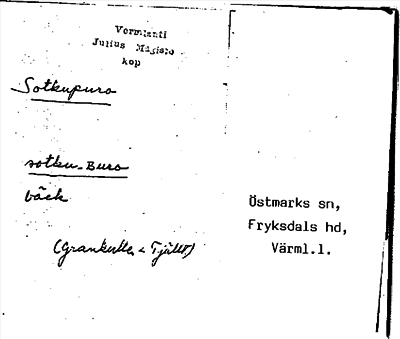 Vermlanti
Julius Mägiste
kop
Sotkupuro
sotku-Buro
bäck
Östmarks sn,
Fryksdals hd,
Värml.l.